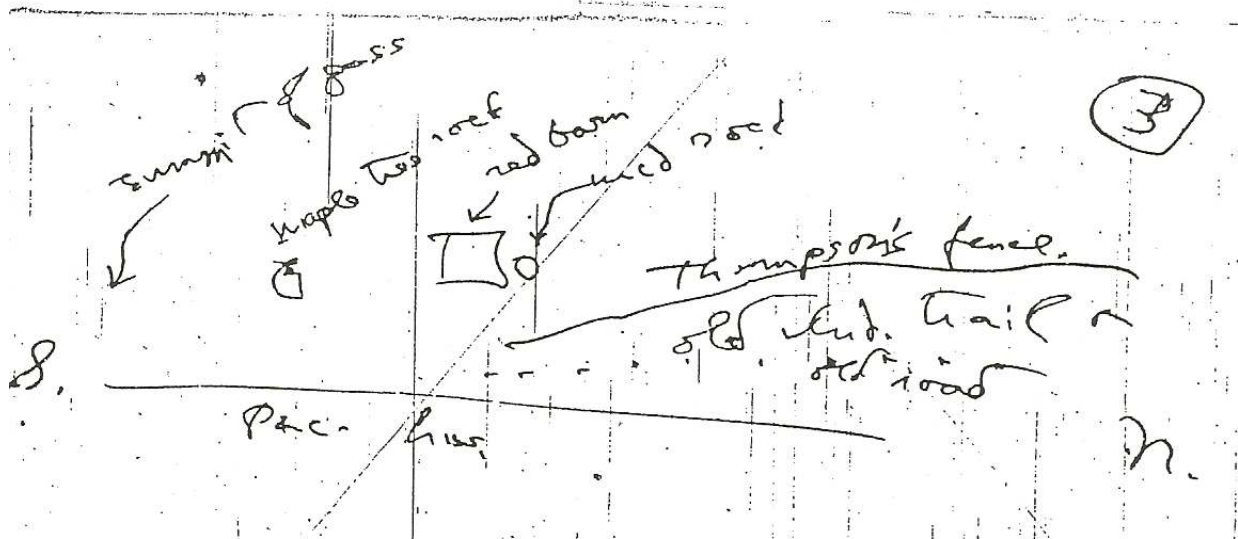 3
summit of pass
maple tree
red barn
med rock
Thompson's fence.
old ind. trail or
old road
S.
Pac. hiw.
N.